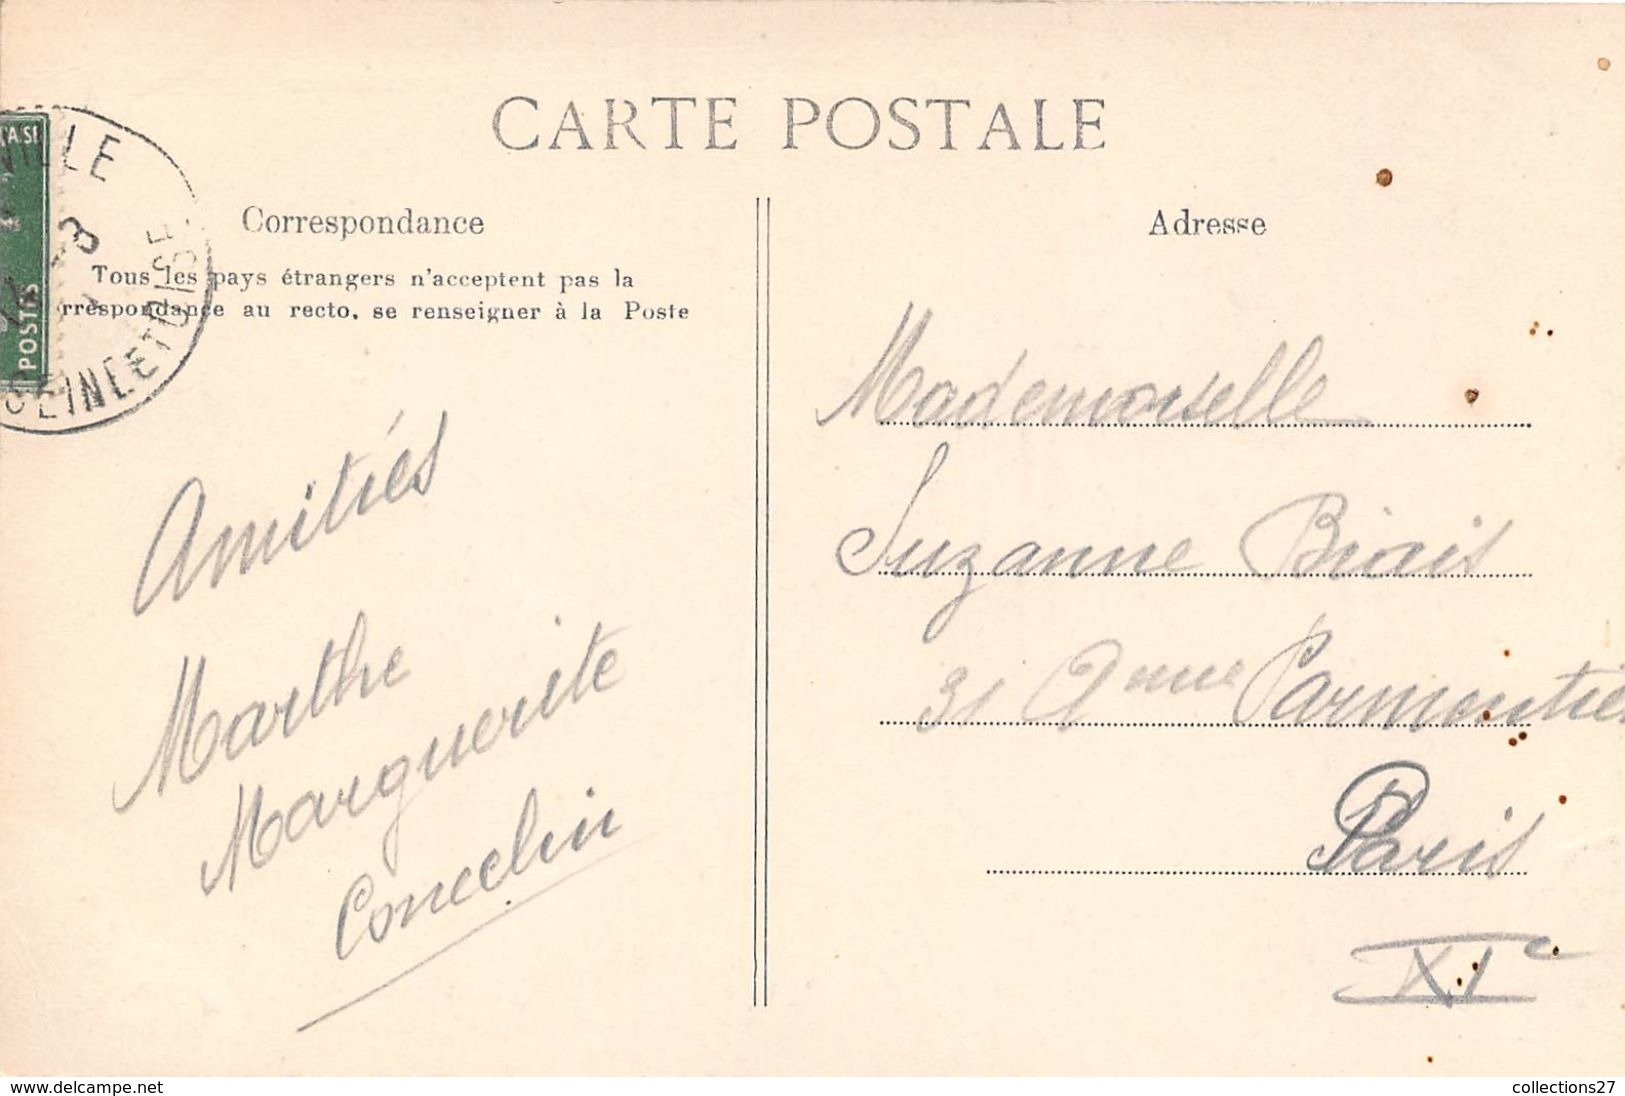 CARTE POSTALE
Correspondance
Tous les pays étrangers n'acceptent pas la
rrespondance au recto, se renseigner à la Poste
Amitiés
Marthe
Marguerite
Adresse
Mademoiselle
Suzanne Biais
31 Avenue Parmentier
Paris
XIe
VILLE
SEINE ET OISE
POSTES
www.delcampe.net
collections27